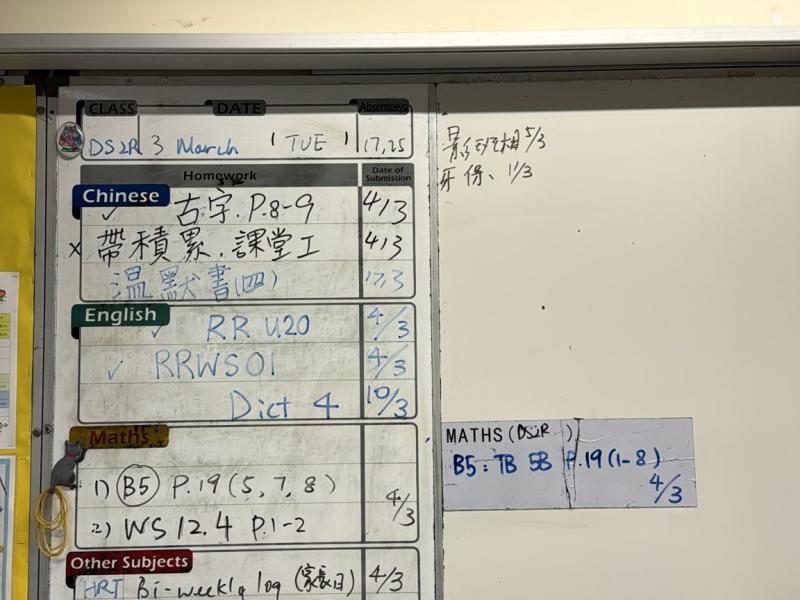 CLASS DATE Absentees
DS2R 3 March (TUE) 17,25
Homework Date of Submission
Chinese
✓ 古字.P.8-9 4/3
x 帶積累.課堂工 4/3
溫默書(四) 17/3
English
✓ RR U.20 4/3
✓ RRWS01 4/3
Dict 4 10/3
Maths
1) B5 P.19 (5, 7, 8)
4/3
2) WS 12.4 P.1-2
Other Subjects
HRT Bi-weekly log (家長日) 4/3
影班相 5/3
牙保、11/3
MATHS (DS2R )
B5: TB 5B P.19 (1-8)
4/3